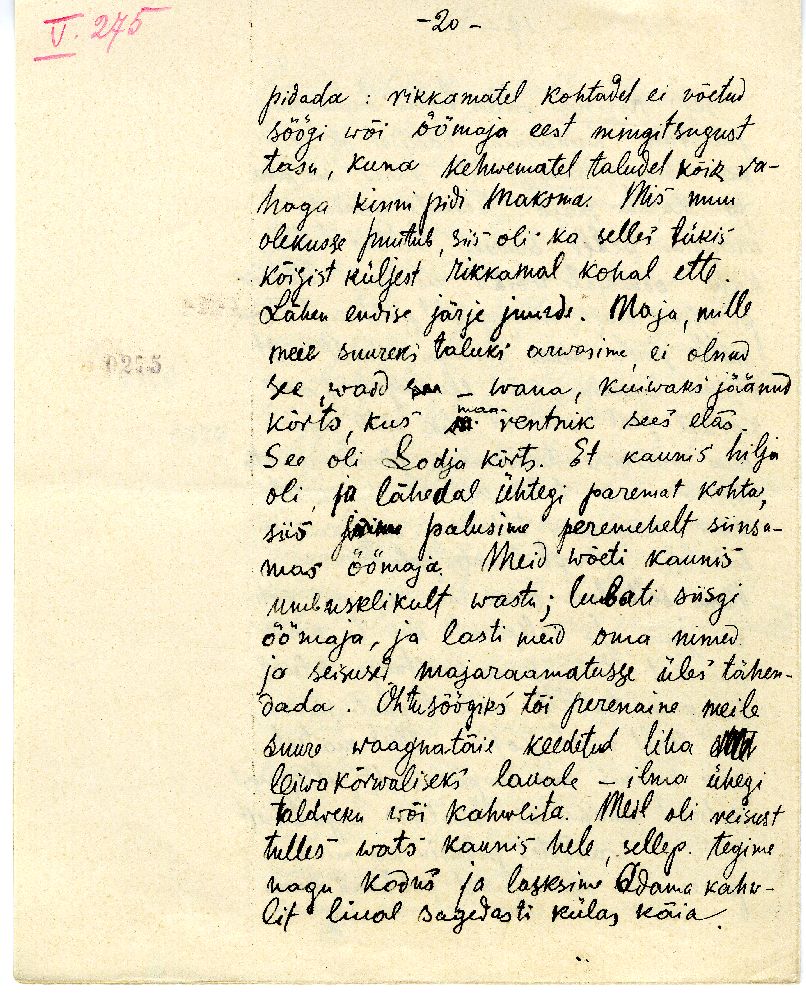 V. 275
-20-
pidada : rikkamatel kohtadel ei võetud
söögi wõi öömaja eest mingitsugust
tasu, kuna kehwematel taludel kõik ra-
haga kinni pidi maksma. Mis muu
olekusse puutub, siis oli ka selles tükis
kõigist küljest rikkamal kohal ette.
Lähen endise järje juurde. Maja, mille
meie suureks taluks arwasime, ei olnud
see, waid – wana, kuiwaks jäänud
kõrts, kus maa-rentnik sees elas.
See oli Lodja kõrts. Et kaunis hilja
oli, ja lähedal ühtegi paremat kohta,
siis palusime peremehelt siinsa-
mas öömaja. Meid wõeti kaunis
umbusklikult wastu; lubati siisgi
öömaja, ja lasti meid oma nimed
ja seisused majaraamatusse üles tähen-
dada. Õhtusöögiks tõi perenaine meile
suure waagnatäie keedetud liha
leiwakõrwaliseks lauale – ilma ühegi
taldreku wõi kahwlita. Meil oli reisust
tulles wats kaunis hele, sellep. tegime
nagu kodus ja lasksime Adama kahw-
lit linal sagedasti külas käia.